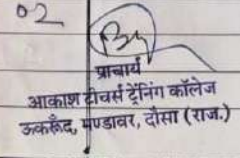 02
प्राचार्य
आकाश टीचर्स ट्रेनिंग कॉलेज
ऊकरूँद, मण्डावर, दौसा (राज.)